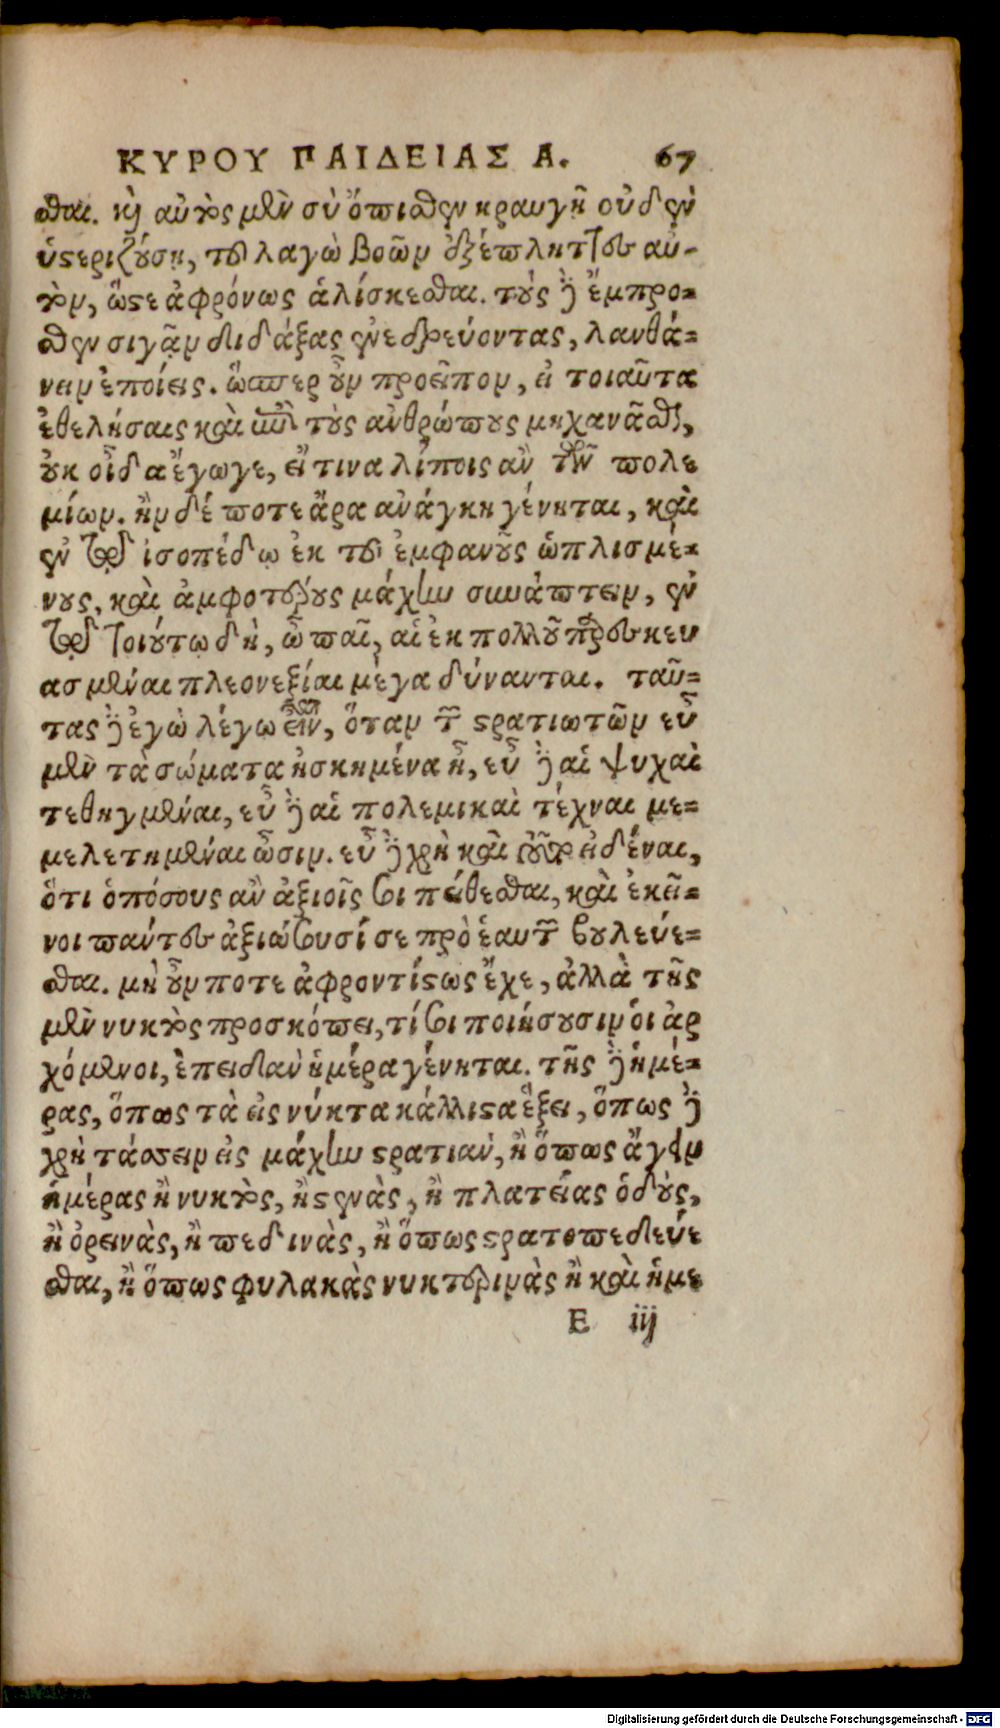 ΚΥΡΟΥ ΠΑΙΔΕΙΑΣ Α. 67
σθαι. καὶ αὐτὸς μὲν σὺ ὄπισθεν κραυγῇ οὐδὲν
ὑστεριζούσῃ, τοῦ λαγὼ βοῶν ἐξέπληττες αὐ-
τὸν, ὥστε ἀφρόνως ἁλίσκεσθαι. τοὺς δὲ ἔμπρο=
σθεν σιγᾷν διδάξας ἐνεδρεύοντας, λανθά=
νειν ἐποίεις. ὥσπερ οὖν προεῖπον, εἰ τοιαῦτα
ἐθελήσαις καὶ ἐπὶ τοὺς ἀνθρώπους μηχανᾶσθαι,
οὐκ οἶδα ἔγωγε, εἴ τινα λίποις ἂν τῶν πολε
μίων. ἢν δέ ποτε ἄρα ἀνάγκη γένηται, καὶ
ἐν τῷ ἰσοπέδῳ ἐκ τοῦ ἐμφανοῦς ὡπλισμέ=
νους, καὶ ἀμφοτέρους μάχην συνάπτειν, ἐν
τῷ τοιούτῳ δὴ, ὦ παῖ, αἱ ἐκ πολλοῦ παρεσκευ
ασμέναι πλεονεξίαι μέγα δύνανται. ταύ=
τας δὲ ἐγὼ λέγω εἶναι, ὅταν τῶν στρατιωτῶν εὖ
μὲν τὰ σώματα ἠσκημένα ᾖ, εὖ δὲ αἱ ψυχαὶ
τεθηγμέναι, εὖ δὲ αἱ πολεμικαὶ τέχναι με=
μελετημέναι ὦσιν. εὖ δὲ χρὴ καὶ τοῦτο εἰδέναι,
ὅτι ὁπόσους ἂν ἀξιοῖς σοι πείθεσθαι, καὶ ἐκεῖ=
νοι πάντες ἀξιώσουσί σε πρὸ ἑαυτῶν βουλεύε=
σθαι. μὴ οὖν ποτε ἀφροντίστως ἔχε, ἀλλὰ τῆς
μὲν νυκτὸς προσκόπει, τί σοι ποιήσουσιν οἱ ἀρ
χόμενοι, ἐπειδὰν ἡμέρα γένηται. τῆς δὲ ἡμέ=
ρας, ὅπως τὰ εἰς νύκτα κάλλιστα ἕξει, ὅπως δὲ
χρὴ τάσσειν εἰς μάχην στρατιὰν, ἢ ὅπως ἄγειν
ἡμέρας ἢ νυκτὸς, ἢ στενὰς, ἢ πλατείας ὁδοὺς,
ἢ ὀρεινὰς, ἢ πεδινὰς, ἢ ὅπως στρατοπεδεύε
σθαι, ἢ ὅπως φυλακὰς νυκτερινὰς ἢ καὶ ἡμε
E iij
Digitalisierung gefördert durch die Deutsche Forschungsgemeinschaft - DFG